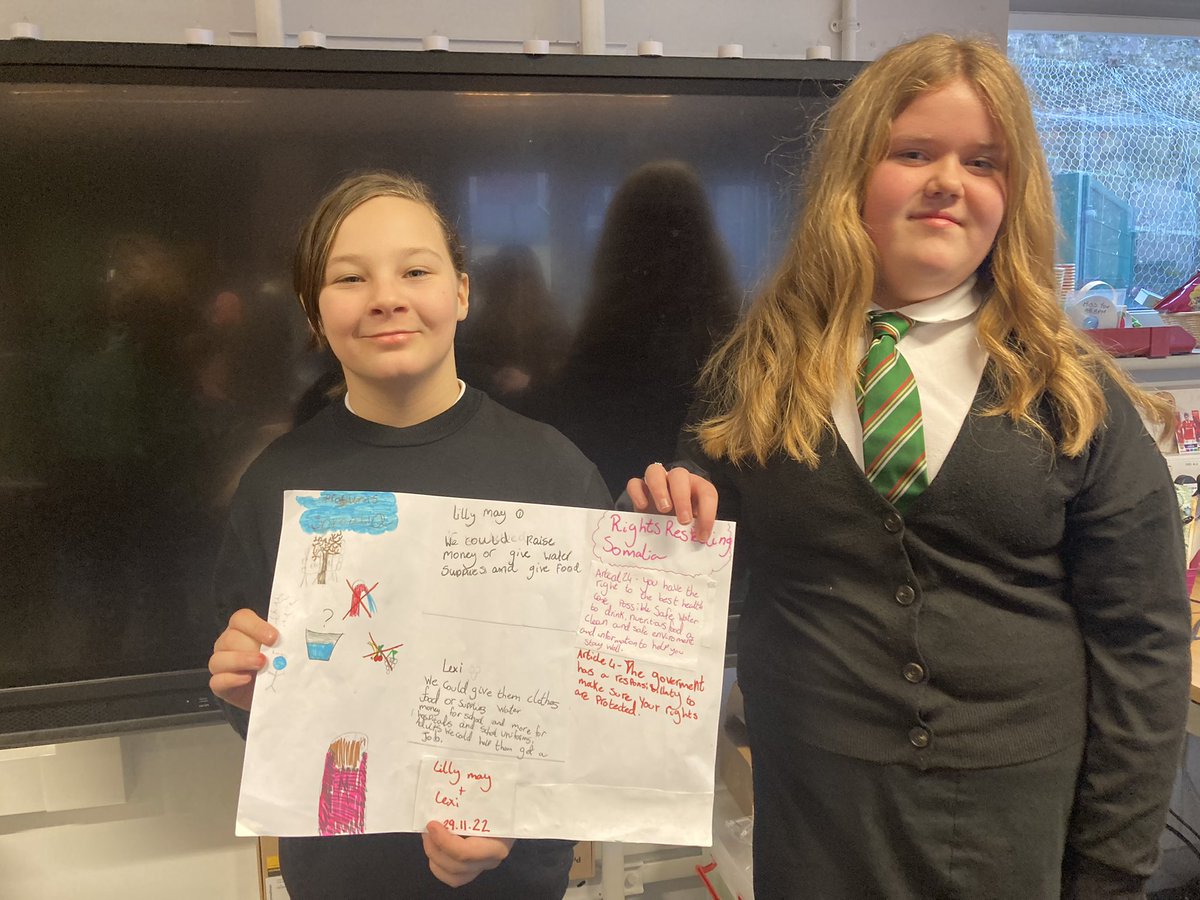 Lilly may
We could Raise
money or give water
supplies and give food
Lexi
We could give them clothes
food or supplies water
money for school and more for
hospitals and school uniforms,
adults we could help them get a
Job.
Lilly may
+
Lexi
29.11.22
Rights Respecting
Somalia
Articel 24 - you have the
right to the best health
care possible safe water
to drink, nutritious food a
clean and safe enviroment
and information to help you
stay well.
Article 4 - The government
has a responsibility to
make sure your rights
are Protected.